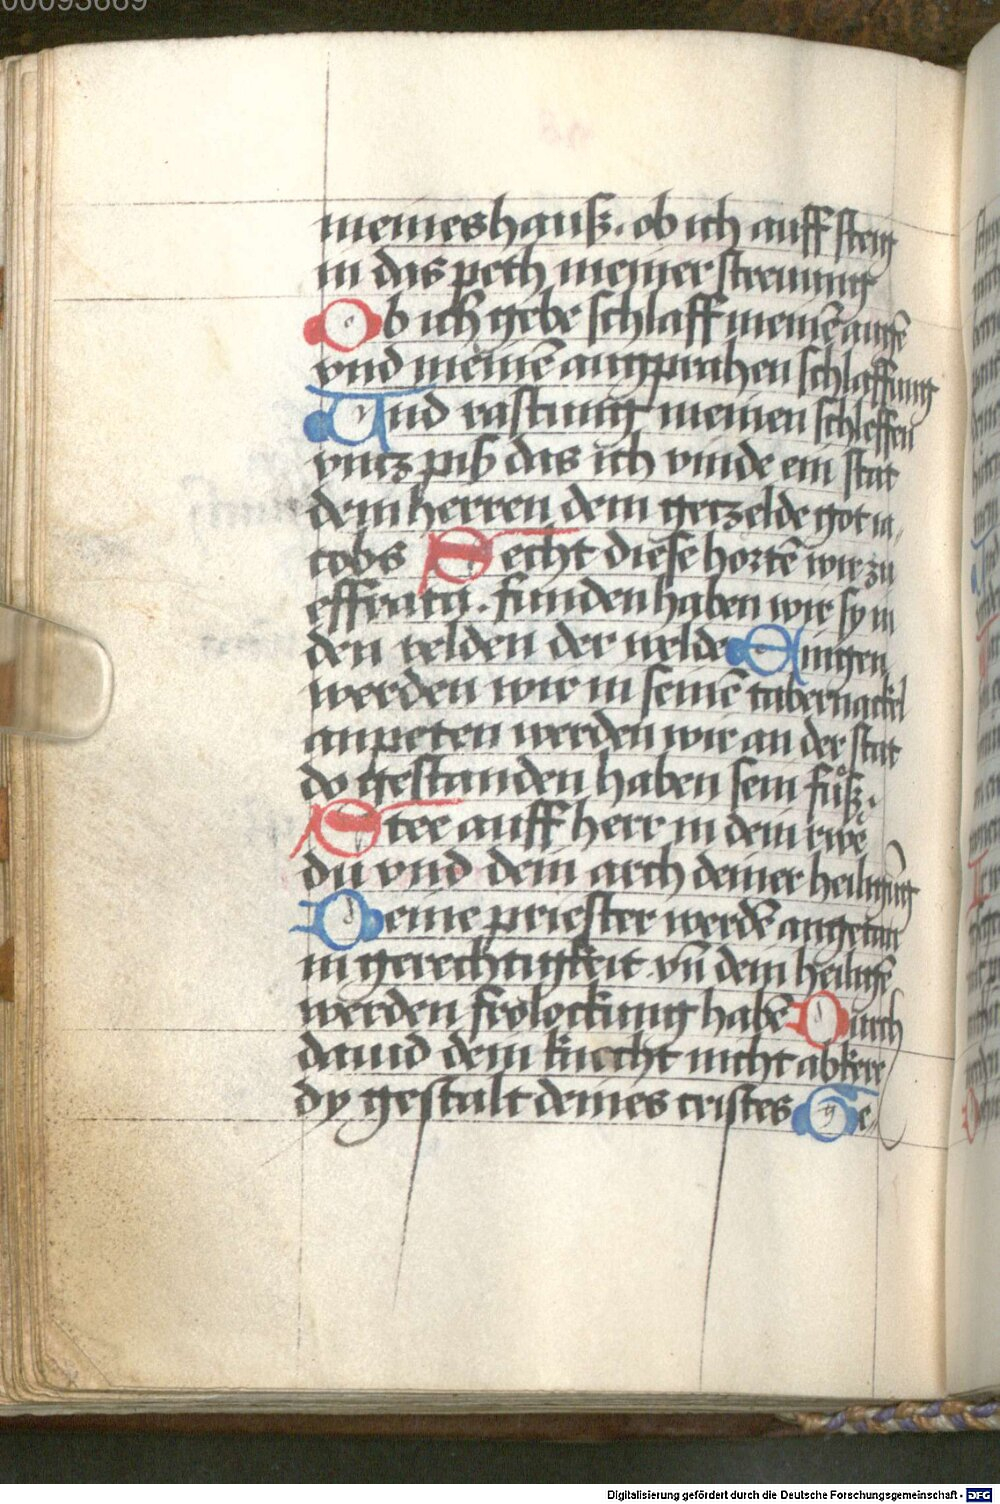 00093669
meines hauß. ob ich auff steig
in das peth meiner streuung
Ob ich gebe schlaff meinē augē
vnd meinē augprahen schlaffung
Und rastung meinen schleffen
vntz piß das ich vinde ein stat
dem herren dem getzelde got ia,
cobs Secht diese hortē wir zu
effrata. funden haben wir sy in
den velden der welde Eingen
werden wir in seinē tabernackel
anpeten werden wir an der stat
do gestanden haben sein fuͦß.
Stee auff herr in dein rwē
du vnd dein arch deiner heiligūg
Deine priester werdē angetan
in gerechtigkeit vn̄ dein heiligē
werden frolockung habē Durch
dauid dein knecht nicht abkere
dy gestalt deines cristes Ge,
Digitalisierung gefördert durch die Deutsche Forschungsgemeinschaft - DFG